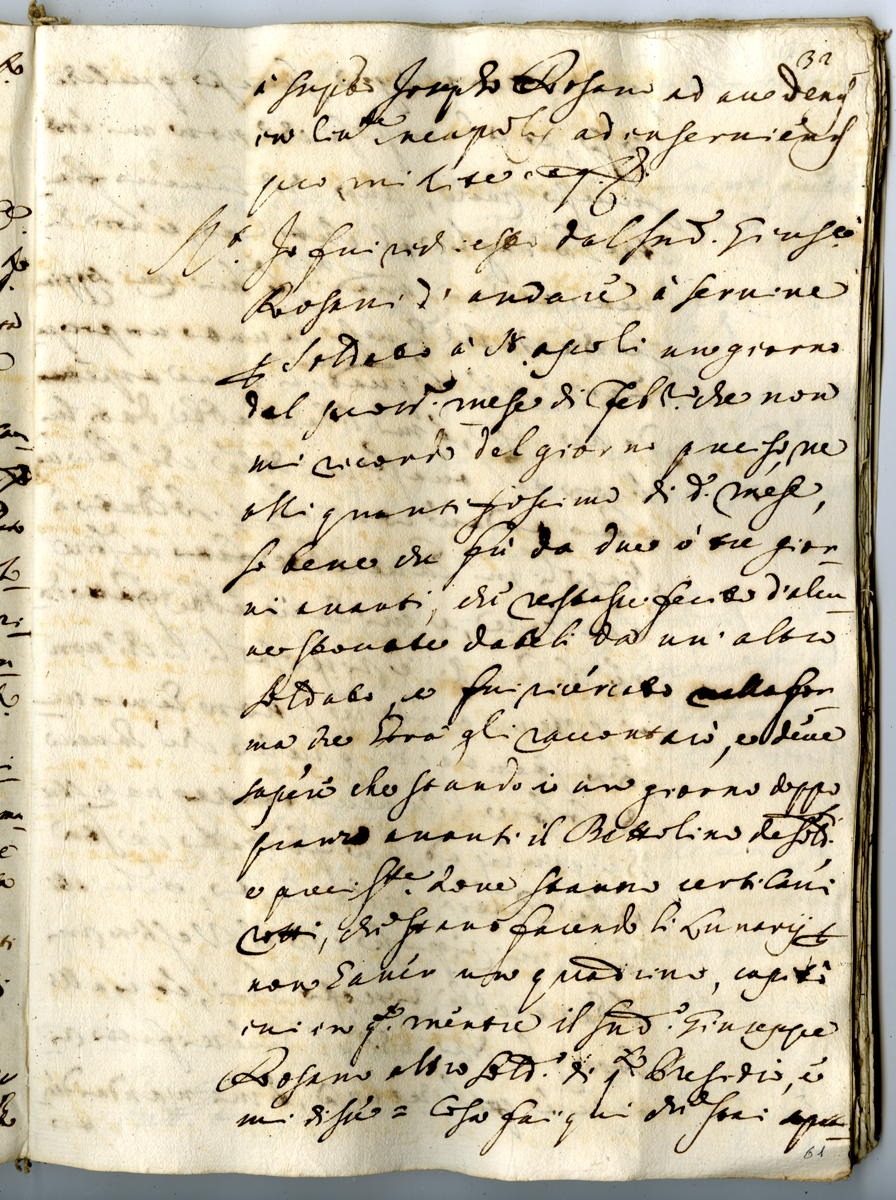 32
à sup.to Joseph Rosano ad accedend.
in Civ.te Neapolis ad inserviend.
pro milite etc.
R.t Io fui richiesto dal sud.o Giusep.e
Rosani d'andare à servire
p Soldato à Napoli un giorno
del pross.o mese di Feb.o che non
mi ricordo del giorno preciso, ne
alli quanti fossimo di d.o mese,
so bene che fù da due ò tre gior
ni avanti, che restasse ferito d'alcu
ne stoccate dateli da un' altro
soldato, e fui ricercato nella for
ma che hora gli racconterò, e deve
sapere che stando io un giorno doppo
pranzo avanti il Bettolino de Sold.
e precis.te dove stanno certi
rotti, che stavo facendo li Lunarij p
non haver un quadrino, capitò
ivi in q.o mentre il sud.o Giuseppe
Rosano altro sold.o di q.o Presidio, e
mi disse = Cosa fai qui che stai
61